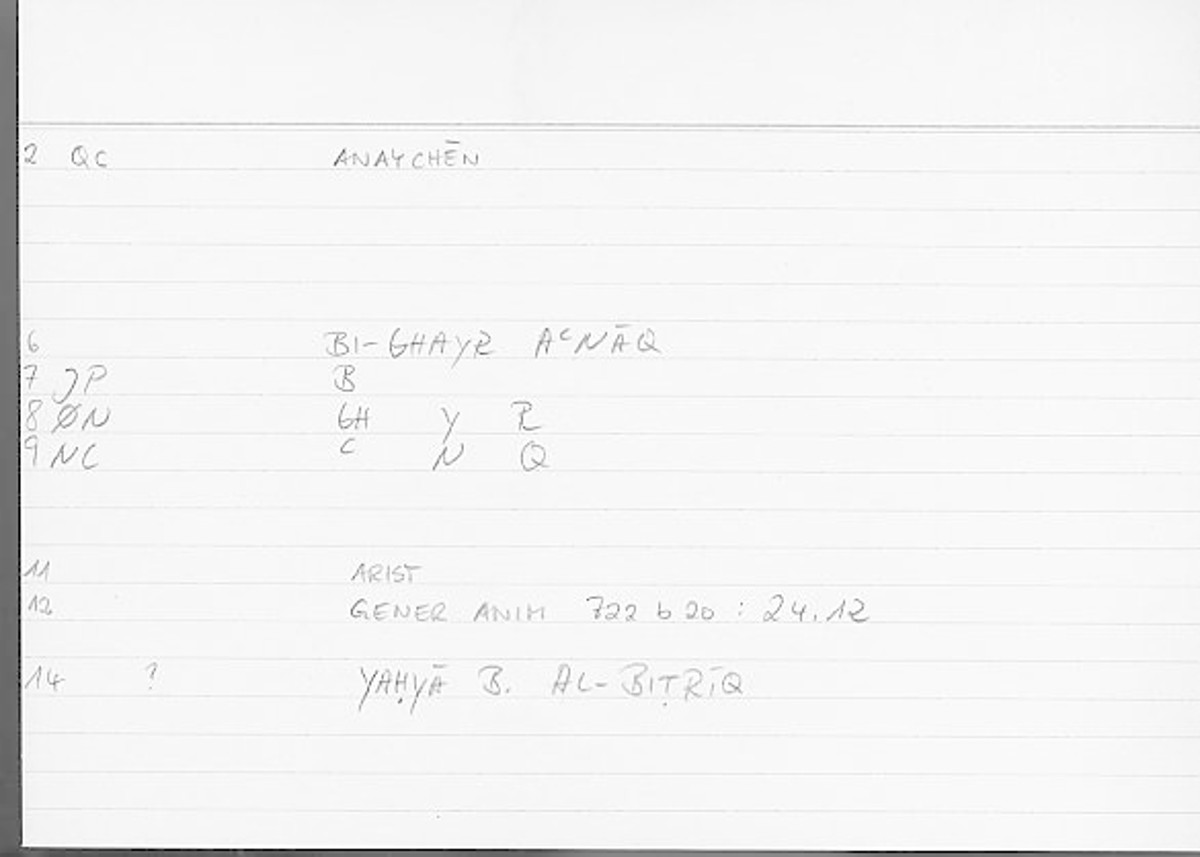 2 QC ANAYCHĒN
6 BI-GHAYR AᶜNĀQ
7 JP B
8 ØN GH Y R
9 NC C N Q
11 ARIST
12 GENER ANIM 722 b 20 : 24.12
14 ? YAḤYĀ B. AL-BIṬRĪQ